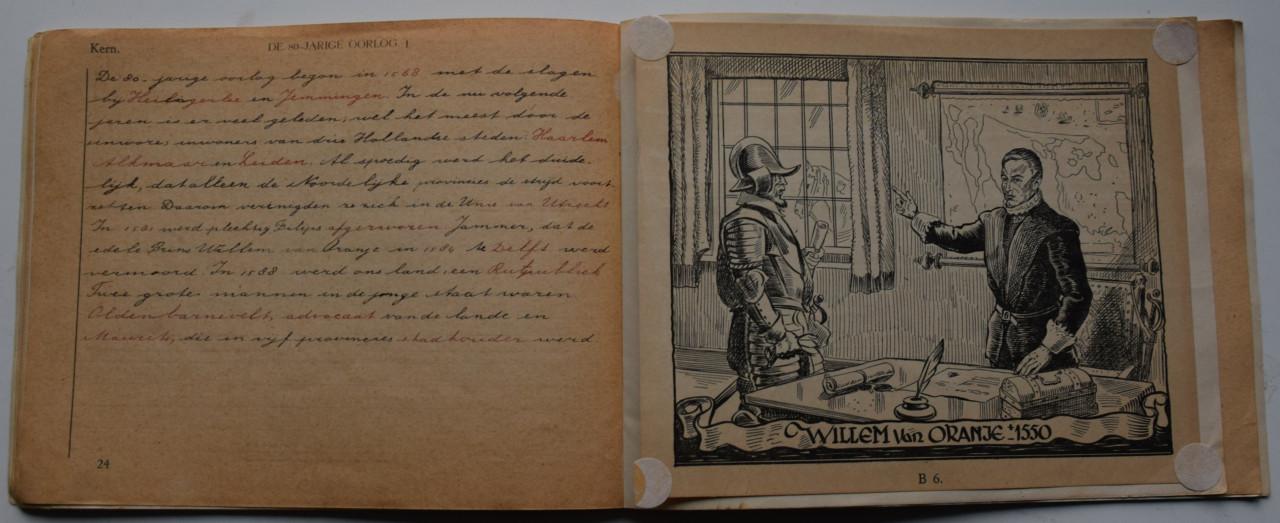 Kern.
DE 80-JARIGE OORLOG I
De 80-jarige oorlog begon in 1568 met de slagen
bij Heiligerlee en Jemmingen. In de nu volgende
jaren is er veel geleden; wel het meest door de
inwoners van drie Hollandse steden: Haarlem
Alkmaar en Leiden. Al spoedig werd het duide-
lijk, dat alleen de Noordelijke provincies de strijd voort
zetten Daarom verenigden ze zich in de Unie van Utrecht
In 1581 werd plechtig Filips afgezworen Jammer, dat de
edele Prins Willem van Oranje in 1584 te Delft werd
vermoord. In 1588 werd ons land een Republiek
Twee grote mannen in de jonge staat waren
Oldenbarnevelt, advocaat van de lande en
Maurits, die in vijf provincies stadhouder werd
24
WILLEM van ORANJE ± 1550
B 6.